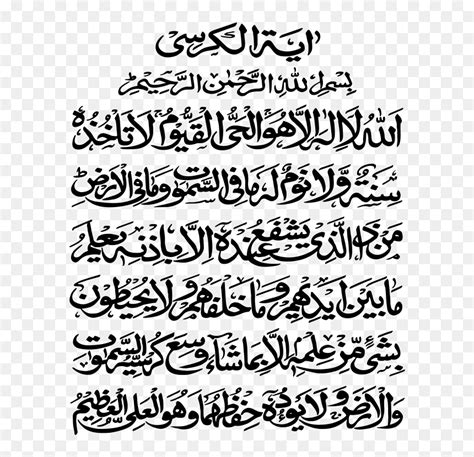 اٰية الكرسى
بسم الله الرحمن الرحيم
الله لا اله الا هو الحى القيوم لا تاخذه
سنة ولا نوم له ما فى السمٰوت وما فى الارض
من ذا الذى يشفع عنده الا باذنه يعلم
ما بين ايديهم وما خلفهم ولا يحيطون
بشئ من علمه الا بما شاء وسع كرسيه السمٰوت
والارض ولا يؤده حفظهما وهو العلى العظيم